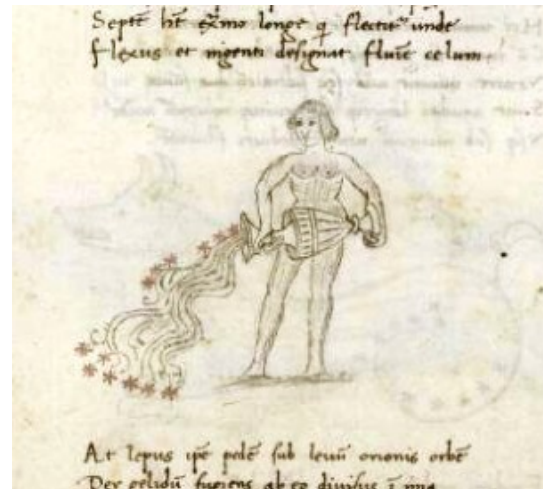 Septē hēt exīmo longe q̄ flectitr unde
Flexus et ingenti designat fluīe celum.
At lepus ipē pedē sub levū orionis orbē
Per gelidū fugiens ab eo divisus ī